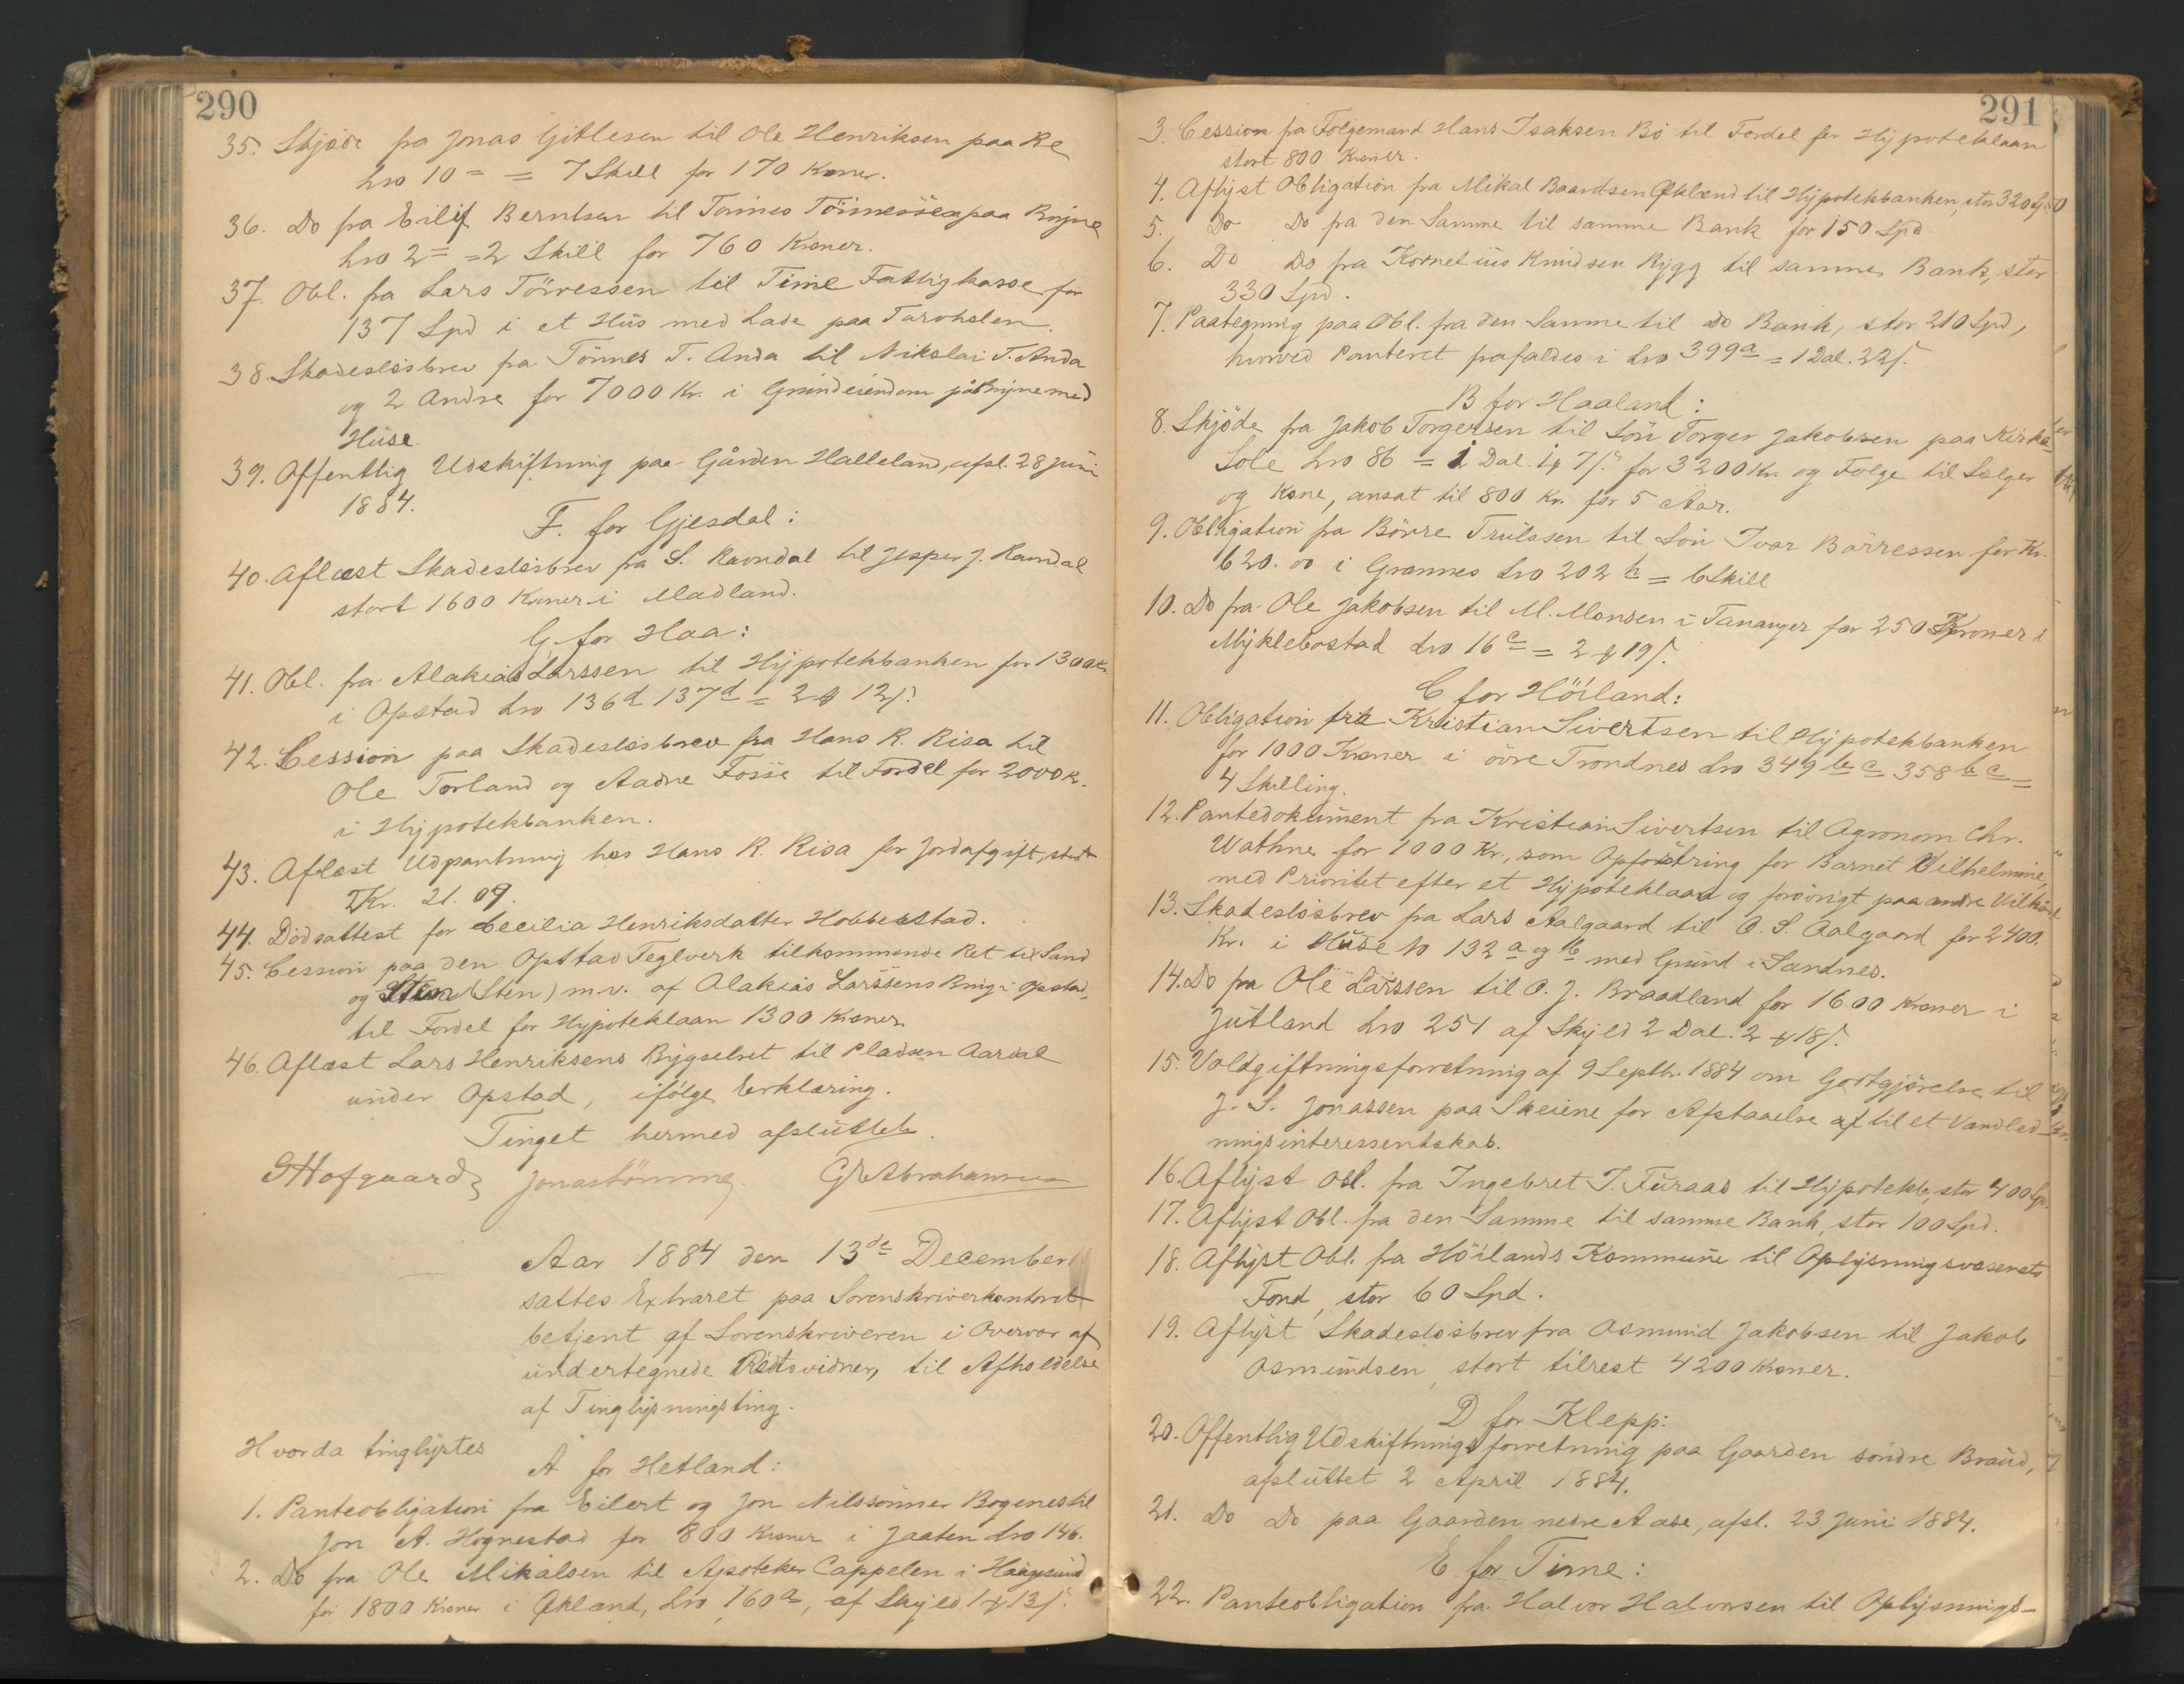 290
35. Skjøde fra Jonas Gitlesen til Ole Henriksen paa Re
Lno 10 = 7 Skill for 170 Kroner.
36. Do fra Eilif Berntsen til Tönnes Tönnessen paa Bryne
Lno 2 = 2 Skill for 760 Kroner.
37. Obl. fra Lars Törressen til Time Fattigkasse for
137 Spd i et Hüs med Lade paa Tarohslen.
38. Skadeslösbrev fra Tönnes T. Anda til Nikolai T. Anda
og 2 Andre for 7000 Kr. i Gründeiendom på Bryne med
Hüse.
39. Offentlig Udskiftning paa Gården Halleland, afsl. 28 Juni
1884.
F. for Gjesdal:
40. Aflæst Skadeslösbrev fra S. Ravndal til Jesper J. Ravndal
stort 1600 Kroner i Madland.
G. for Haa:
41. Obl. fra Alakias Larssen til Hypotekbanken for 1300 Kr.
i Opstad Lno 136d 137d = 2 12 s.
42. Cession paa Skadeslösbrev fra Hans R. Risa til
Ole Torland og Aadne Fosse til Fordel for 2000 K.
i Hypotekbanken.
43. Aflæst Udpantning hos Hans R. Risa for Jordafgift, stor
Kr. 21.09.
44. Dödsattest for Cecilia Henriksdatter Hobbesstad.
45. Cession paa den Opstad Teglverk tilkommende Ret til Sand
og Sten (Sten) m.v. af Alakias Larssens Brug i Opstad,
til Fordel for Hypoteklaan 1300 Kroner.
46. Aflæst Lars Henriksens Bygselret til Pladsen Aardal
under Opstad, ifölge Erklæring.
Tinget hermed afslüttet.
GHofgaard Jonas Tömmg. G Abrahamsen
Aar 1884 den 13de December
sattes Extraret paa Sorenskriverkontoret
betjent af Sorenskriveren i Overvær af
undertegnede Retsvidner, til Afholdelse
af Tinglysningsting.
Hvorda tinglystes
A for Hetland:
1. Panteobligation fra Eilert og Jon Nilssønner Bogenes til
Jon A. Hognestad for 800 Kroner i Jaaten Lno 146.
2. Do fra Ole Mikalsen til Apoteker Cappelen i Haugesund
for 1800 Kroner i Økland, Lno 160a, af Skyld 1 13 s.
291
3. Cession fra Folgemand Hans Isaksen Bö til Fordel for Hypoteklaan
stort 800 Kroner.
4. Aflyst Obligation fra Mikal Baardsen Økland til Hypotekbanken, stor 320 Spd
5. Do Do fra den Samme til samme Bank for 150 Spd
6. Do Do fra Kornelius Knudsen Rygg til samme Bank, stor
330 Spd.
7. Paategning paa Obl. fra den Samme til Do Bank, stor 210 Spd,
hvorved Panteret frafaldes i Lno 399a = 1 Dal. 22 s.
B for Haaland:
8. Skjöde fra Jakob Torgersen til Sön Torger Jakobsen paa Kirke-
Sole Lno 86 = 1 Dal. 1 7 s. for 3200 Kr. og Folge til Sælger
og Kone, ansat til 800 Kr. for 5 Aar.
9. Obligation fra Börre Trülssen til Sön Ivar Börressen for Kr.
620.00 i Grannes Lno 202b = 6 Skill
10. Do fra Ole Jakobsen til M. Monsen i Tananger for 250 Kroner i
Myklebostad Lno 16c = 2 19 s.
C for Höiland:
11. Obligation fra Kristian Sivertsen til Hypotekbanken
for 1000 Kroner i övre Trondnes Lno 349 b c 358 b c =
4 Skilling.
12. Pantedokument fra Kristian Sivertsen til Agronom Chr.
Wathne for 1000 Kr., som Opfostring for Barnet Vilhelmine,
med Prioritet efter et Hypoteklaan og forövrigt paa andre Vilkår
13. Skadeslösbrev fra Lars Aalgaard til O. S. Aalgaard for 2400.
Kr. i Hüse No 132 a og b med Grund i Sandnes.
14. Do fra Ole Larssen til O. J. Braadland for 1600 Kroner i
Jütland Lno 251 af Skyld 2 Dal. 2 18 s.
15. Voldgiftningsforretning af 9 Septb. 1884 om Godtgjörelse til
J. S. Jonassen paa Skeiene for Afstaaelse af til et Vandled-
ningsinteressentskab.
16. Aflyst Obl. fra Ingebret T. Füraas til Hypotekb, stor 400 Spd.
17. Aflyst Obl. fra den Samme til samme Bank, stor 100 Spd.
18. Aflyst Obl. fra Höilands Kommune til Oplysningsvæsenets
Fond, stor 60 Spd.
19. Aflyst Skadeslösbrev fra Osmund Jakobsen til Jakob
Osmundsen, stort tilrest 4200 Kroner.
D for Klepp:
20. Offentlig Udskiftningsforretning paa Gaarden söndre Braüd,
afslüttet 2 April 1884.
21. Do Do paa Gaarden nedre Aase, afsl. 23 Juni 1884.
E for Time:
22. Panteobligation fra Halvor Halvorsen til Oplysnings-